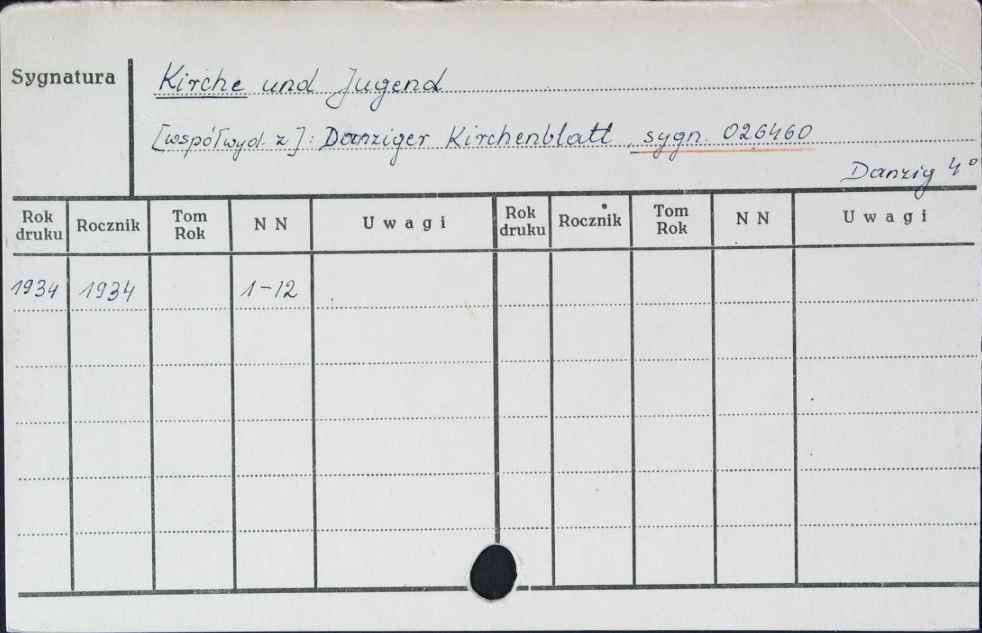 Sygnatura
Kirche und Jugend
[współwyd. z]: Danziger Kirchenblatt, sygn. 026460
Danzig 4°
Rok druku Rocznik Tom Rok NN Uwagi Rok druku Rocznik Tom Rok NN Uwagi
1934 1934 1-12